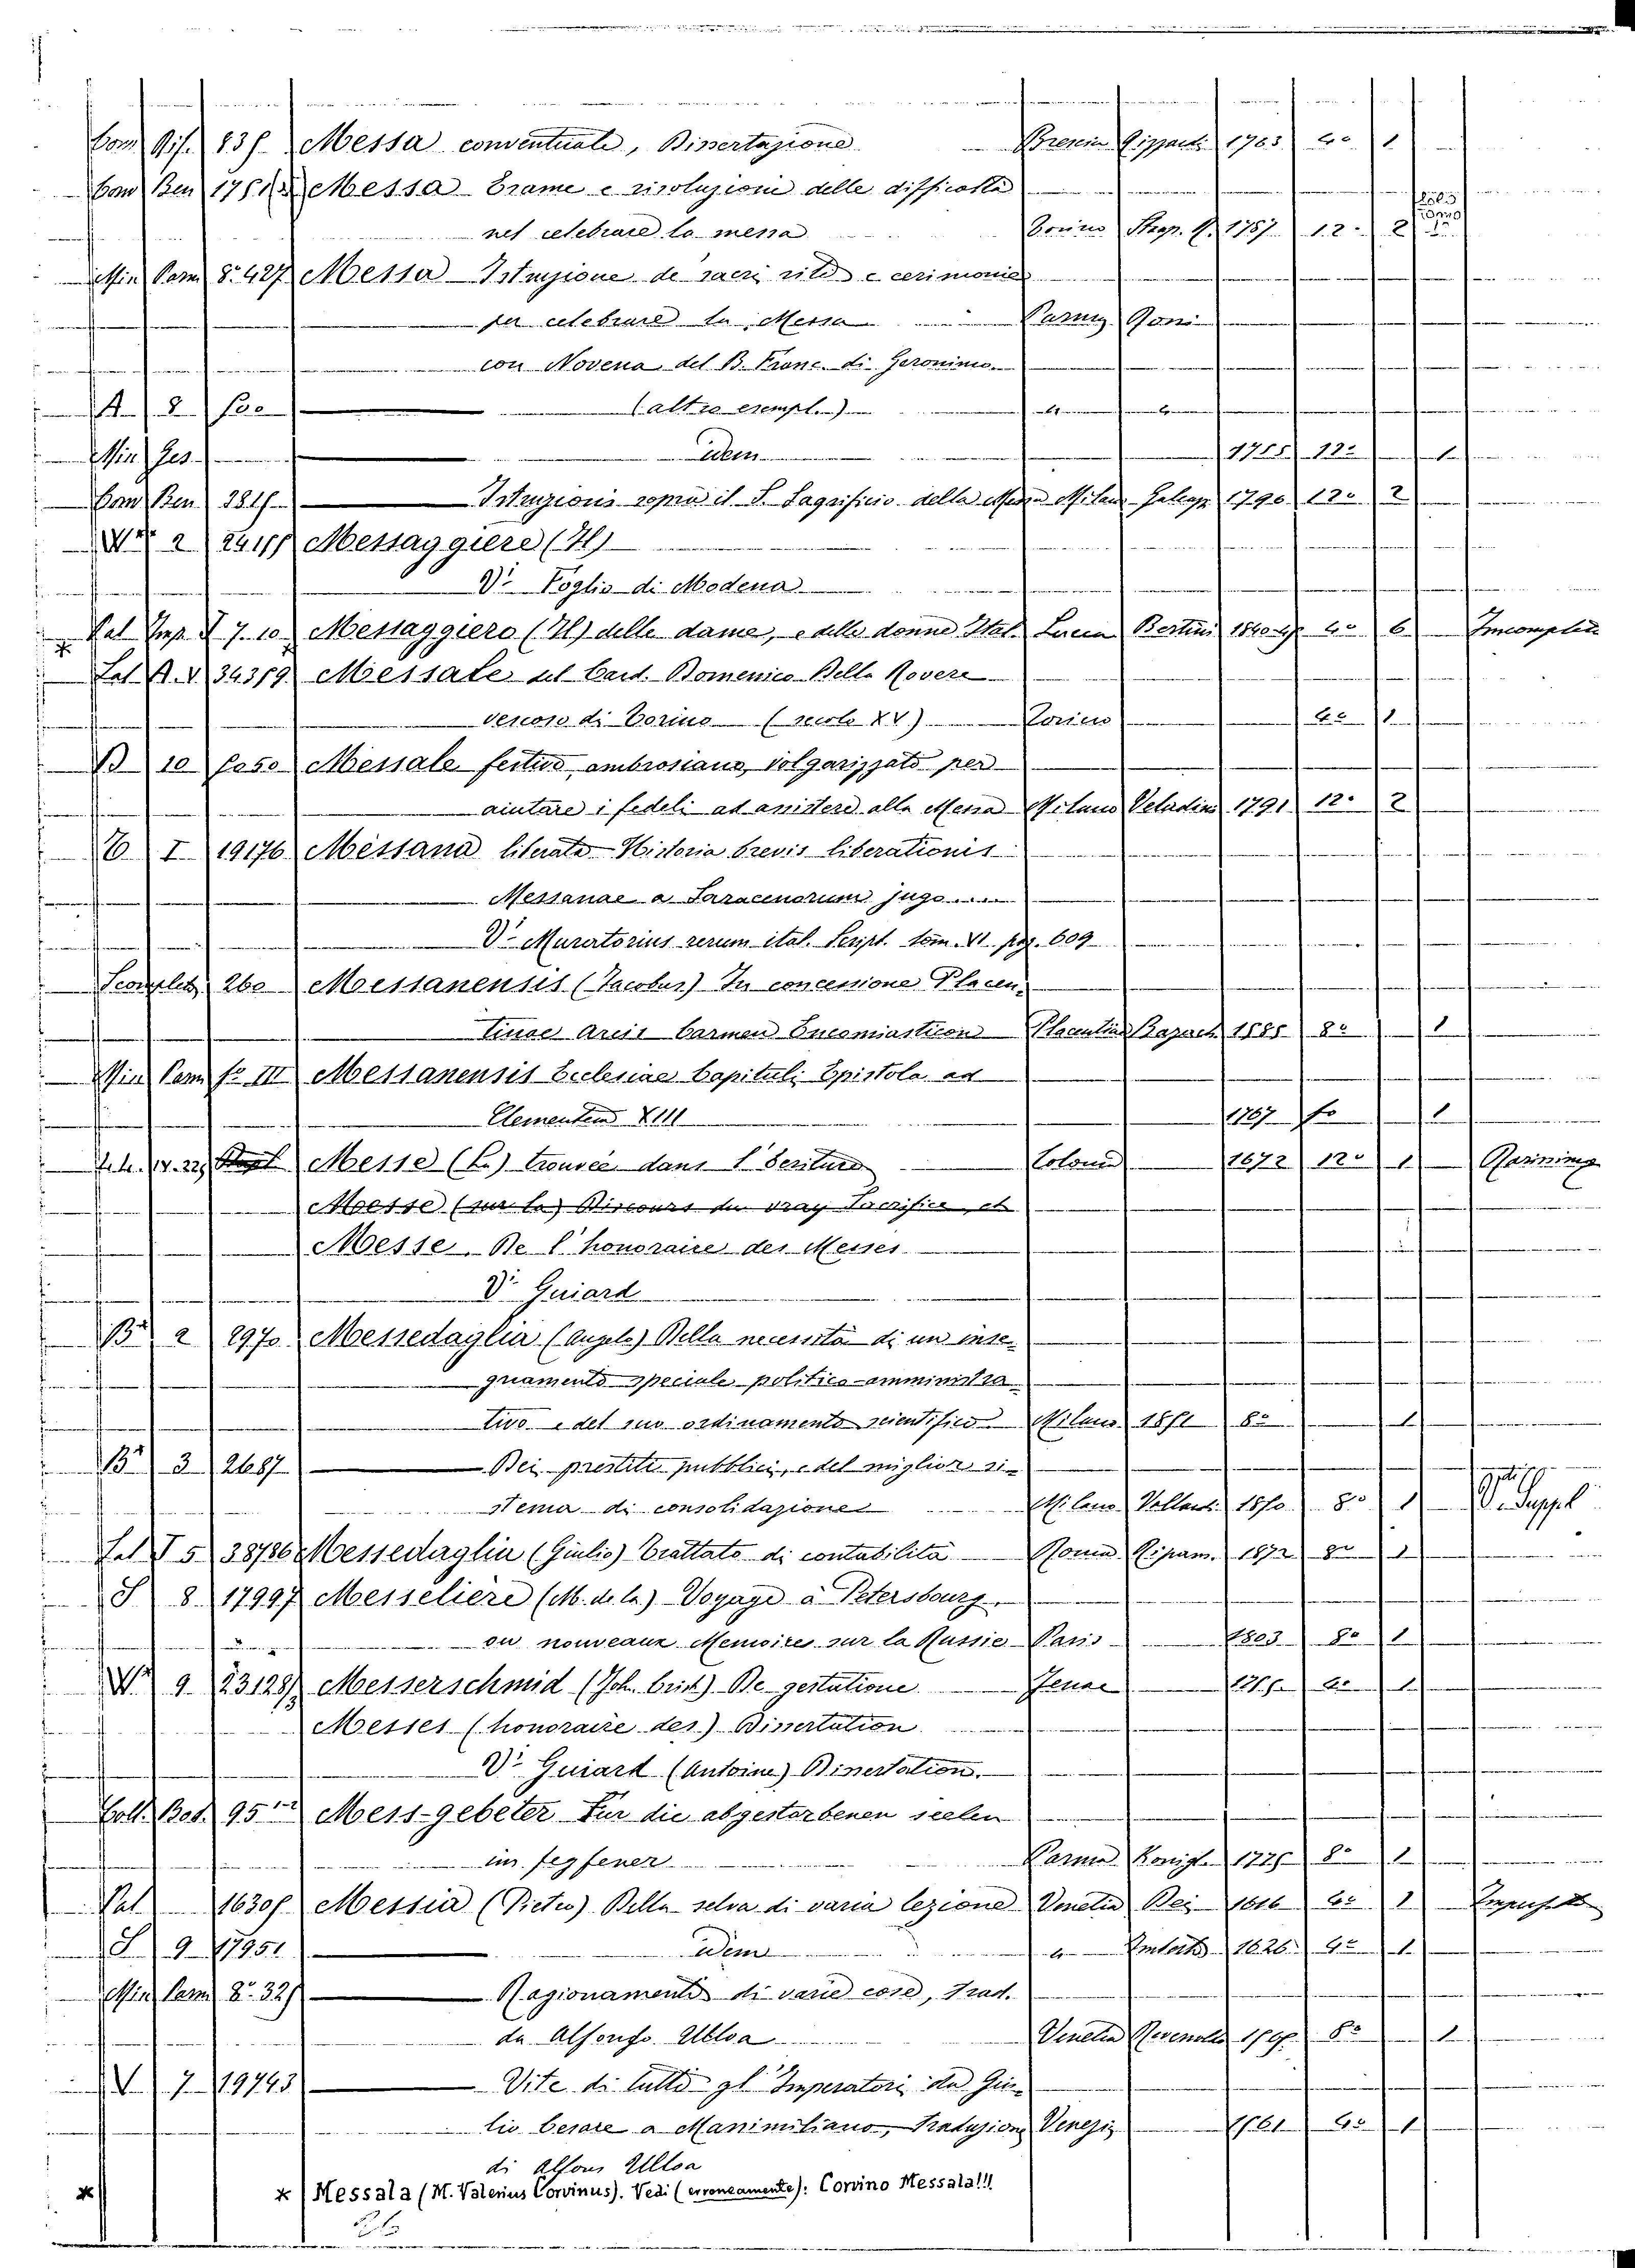 Com Gis. 83f. Messa conventuale, Dissertazione Brescia Rizzardi 1783 4o 1
Com Ben 1751 Messa Esame e risoluzioni delle difficoltà
nel celebrare la messa Torino Stap. R. 1787 12o 2
Min Parm 8o 427 Messa Istruzione de sacri riti e cerimonie
per celebrare la Messa Parma Goni
con Novena del B. Franc. di Geronimo.
A 2 (altro esempl.)
Min Ges. idem 1788 12o 1
Com Ben 281f. Istruzioni sopra il S. Sagrifizio della Messa Milano Galeaz 1790 12o 2
W 2 Messaggiere (Il)
Vi Foglio di Modena
Pal Imp. I 7. 10 Messaggiero (Il) delle dame, e delle donne Ital. Lucca Bertini 1840 4o 6 Incomplet
Sal A. V 34319 Messale del Card. Domenico Della Rovere
vescovo di Torino (secolo XV) Torino 4o 1
B 10 Messale festivo ambrosiano, volgarizzato per
aiutare i fedeli ad assistere alla Messa Milano Veladini 1791 12o 2
I 19176 Messana liberata Historia brevis liberationis
Messanae a Saracenorum jugo
Vi Muratorius rerum ital. Script. tom. VI. pag. 609
260 Messanensis (Jacobus) In concessione Placen-
tinae Arcis Carmen Encomiasticon Placentiae Bazach 1585 8o 1
Min Parm fo III Messanensis Ecclesiae Capituli Epistola ad
Clementem XIII 1767 fo 1
Messe (La) trouvée dans l'Ecriture Colonia 1672 12o 1
Messe (sur la) Discours du vray Sacrifice et
Messe. De l'honoraire des Messes
Vi Guiard
B 2 2970 Messedaglia (Angelo) Della necessità di un inse-
gnamento speciale politico-amministra
tivo e del suo ordinamento scientifico Milano 1851 8o 1
B 3 2687 Dei prestiti pubblici, e del miglior si-
stema di consolidazione Milano Vallard. 1850 8o 1 V. Suppl
Sal I 5 38786 Messedaglia (Giulio) Trattato di contabilità Roma Ripam. 1872 8o 1
S 8 17997 Messeliere (M. de la) Voyage à Petersbourg,
ou nouveaux Memoires sur la Russie Paris 1803 8o 1
W 9 23128 Messerschmid (Joh. Crist.) De gestatione Jenae 4o 1
Messes (honoraire des) Dissertation
Vi Guiard (Antoine) Dissertation.
Coll. Bod. 95 Mess-gebeter Für die abgestorbenen seelen
im fegfeuer Parma Königl. 1775 8o 1
Pal 1630f Messia (Pietro) Della selva di varia lezione Venetia Bei 1616 4o 1
S 9 17951 idem Imberti 1626 4o 1
Min Parm 8o 32f Ragionamenti di varie cose, Trad.
da Alfonso Ulloa Venetia 8o 1
V 7 19743 Vite di tutti gl'Imperatori da Giu-
lio Cesare a Massimiliano, Traduzione Venezia 1561 4o 1
di Alfons Ulloa
* Messala (M. Valerius Corvinus). Vedi (erroneamente): Corvino Messala!!!